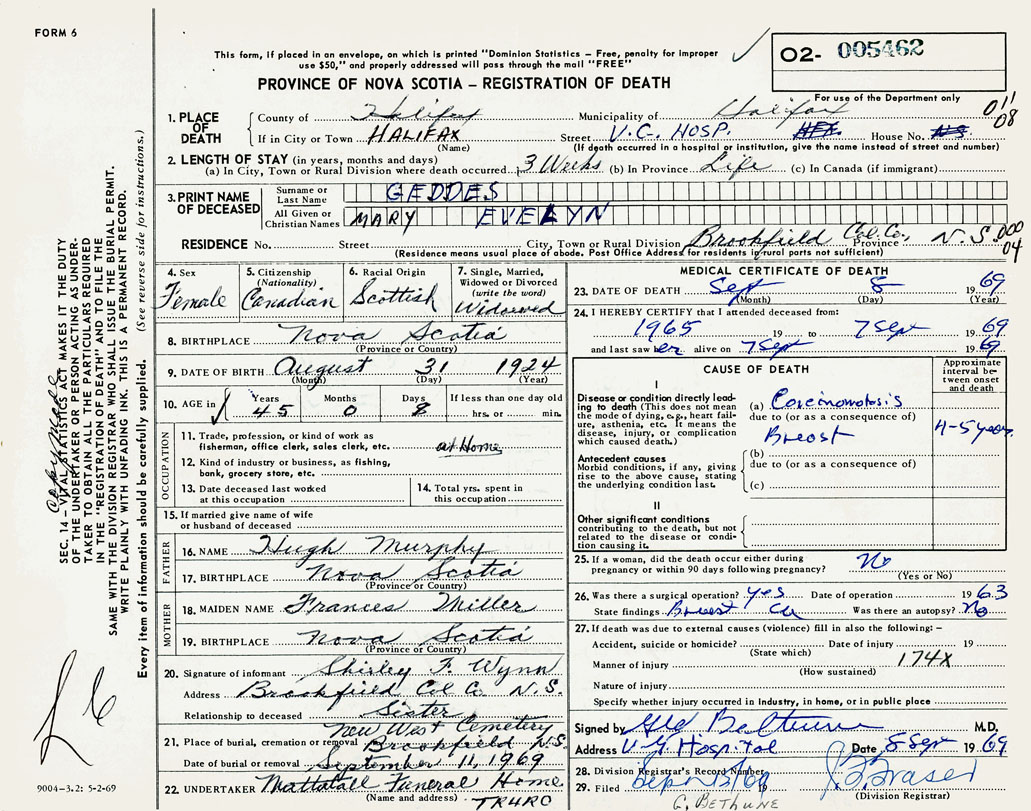 FORM 6
This form, if placed in an envelope, on which is printed "Dominion Statistics – Free, penalty for improper
use $50," and properly addressed will pass through the mail "FREE"
O2- 005462
PROVINCE OF NOVA SCOTIA – REGISTRATION OF DEATH
For use of the Department only
011
08
1. PLACE OF DEATH
County of Halifax Municipality of Halifax
If in City or Town HALIFAX Street V.G. HOSP. House No.
(Name) (If death occurred in a hospital or institution, give the name instead of street and number)
2. LENGTH OF STAY (in years, months and days)
(a) In City, Town or Rural Division where death occurred 3 Weeks (b) In Province Life (c) In Canada (if immigrant)
3. PRINT NAME OF DECEASED
Surname or Last Name GEDDES
All Given or Christian Names MARY EVELYN
RESIDENCE No. Street City, Town or Rural Division Brookfield Col. Co., Province N.S. 000
04
(Residence means usual place of abode. Post Office Address for residents in rural parts not sufficient)
4. Sex Female
5. Citizenship (Nationality) Canadian
6. Racial Origin Scottish
7. Single, Married, Widowed or Divorced (write the word) Widowed
8. BIRTHPLACE Nova Scotia
(Province or Country)
9. DATE OF BIRTH August 31 1924
(Month) (Day) (Year)
10. AGE in Years 45 Months 0 Days 8 If less than one day old hrs. or min.
OCCUPATION
11. Trade, profession, or kind of work as fisherman, office clerk, sales clerk, etc. at Home
12. Kind of industry or business, as fishing, bank, grocery store, etc.
13. Date deceased last worked at this occupation
14. Total yrs. spent in this occupation
15. If married give name of wife or husband of deceased
FATHER
16. NAME Hugh Murphy
17. BIRTHPLACE Nova Scotia
(Province or Country)
MOTHER
18. MAIDEN NAME Frances Miller
19. BIRTHPLACE Nova Scotia
(Province or Country)
20. Signature of informant Shirley F. Wynn
Address Brookfield Col Co. N.S.
Relationship to deceased Sister
New West Cemetery
21. Place of burial, cremation or removal Brookfield N.S.
Date of burial or removal September 11, 1969
22. UNDERTAKER Mattatall Funeral Home
(Name and address) TRURO
MEDICAL CERTIFICATE OF DEATH
23. DATE OF DEATH Sept 8 1969
(Month) (Day) (Year)
24. I HEREBY CERTIFY that I attended deceased from:
1965 19 to 7 Sept 1969
and last saw her alive on 7 Sept 1969
CAUSE OF DEATH
Approximate interval between onset and death
I
Disease or condition directly leading to death (This does not mean the mode of dying, e.g., heart failure, asthenia, etc. It means the disease, injury, or complication which caused death.)
(a) Carcinomatosis
due to (or as a consequence of)
Breast 4-5 years
Antecedent causes
Morbid conditions, if any, giving rise to the above cause, stating the underlying condition last.
(b)
due to (or as a consequence of)
(c)
II
Other significant conditions contributing to the death, but not related to the disease or condition causing it.
25. If a woman, did the death occur either during pregnancy or within 90 days following pregnancy? No
(Yes or No)
26. Was there a surgical operation? yes Date of operation 1963
State findings Breast Ca Was there an autopsy? No
27. If death was due to external causes (violence) fill in also the following: –
Accident, suicide or homicide? Date of injury 19
(State which)
Manner of injury 174X
(How sustained)
Nature of injury
Specify whether injury occurred in industry, in home, or in public place
Signed by M.D.
Address V G Hospital Date 8 Sept 1969
28. Division Registrar's Record Number
29. Filed 19 Fraser
(Division Registrar)
C. BETHUNE
SEC. 14 – VITAL STATISTICS ACT MAKES IT THE DUTY
OF THE UNDERTAKER OR PERSON ACTING AS UNDER-
TAKER TO OBTAIN ALL THE PARTICULARS REQUIRED
IN THE "REGISTRATION OF DEATH" AND TO FILE THE
SAME WITH THE DIVISION REGISTRAR WHO SHALL ISSUE THE BURIAL PERMIT.
WRITE PLAINLY WITH UNFADING INK. THIS IS A PERMANENT RECORD.
Every item of information should be carefully supplied. (See reverse side for instructions.)
9004–3.2: 5-2-69